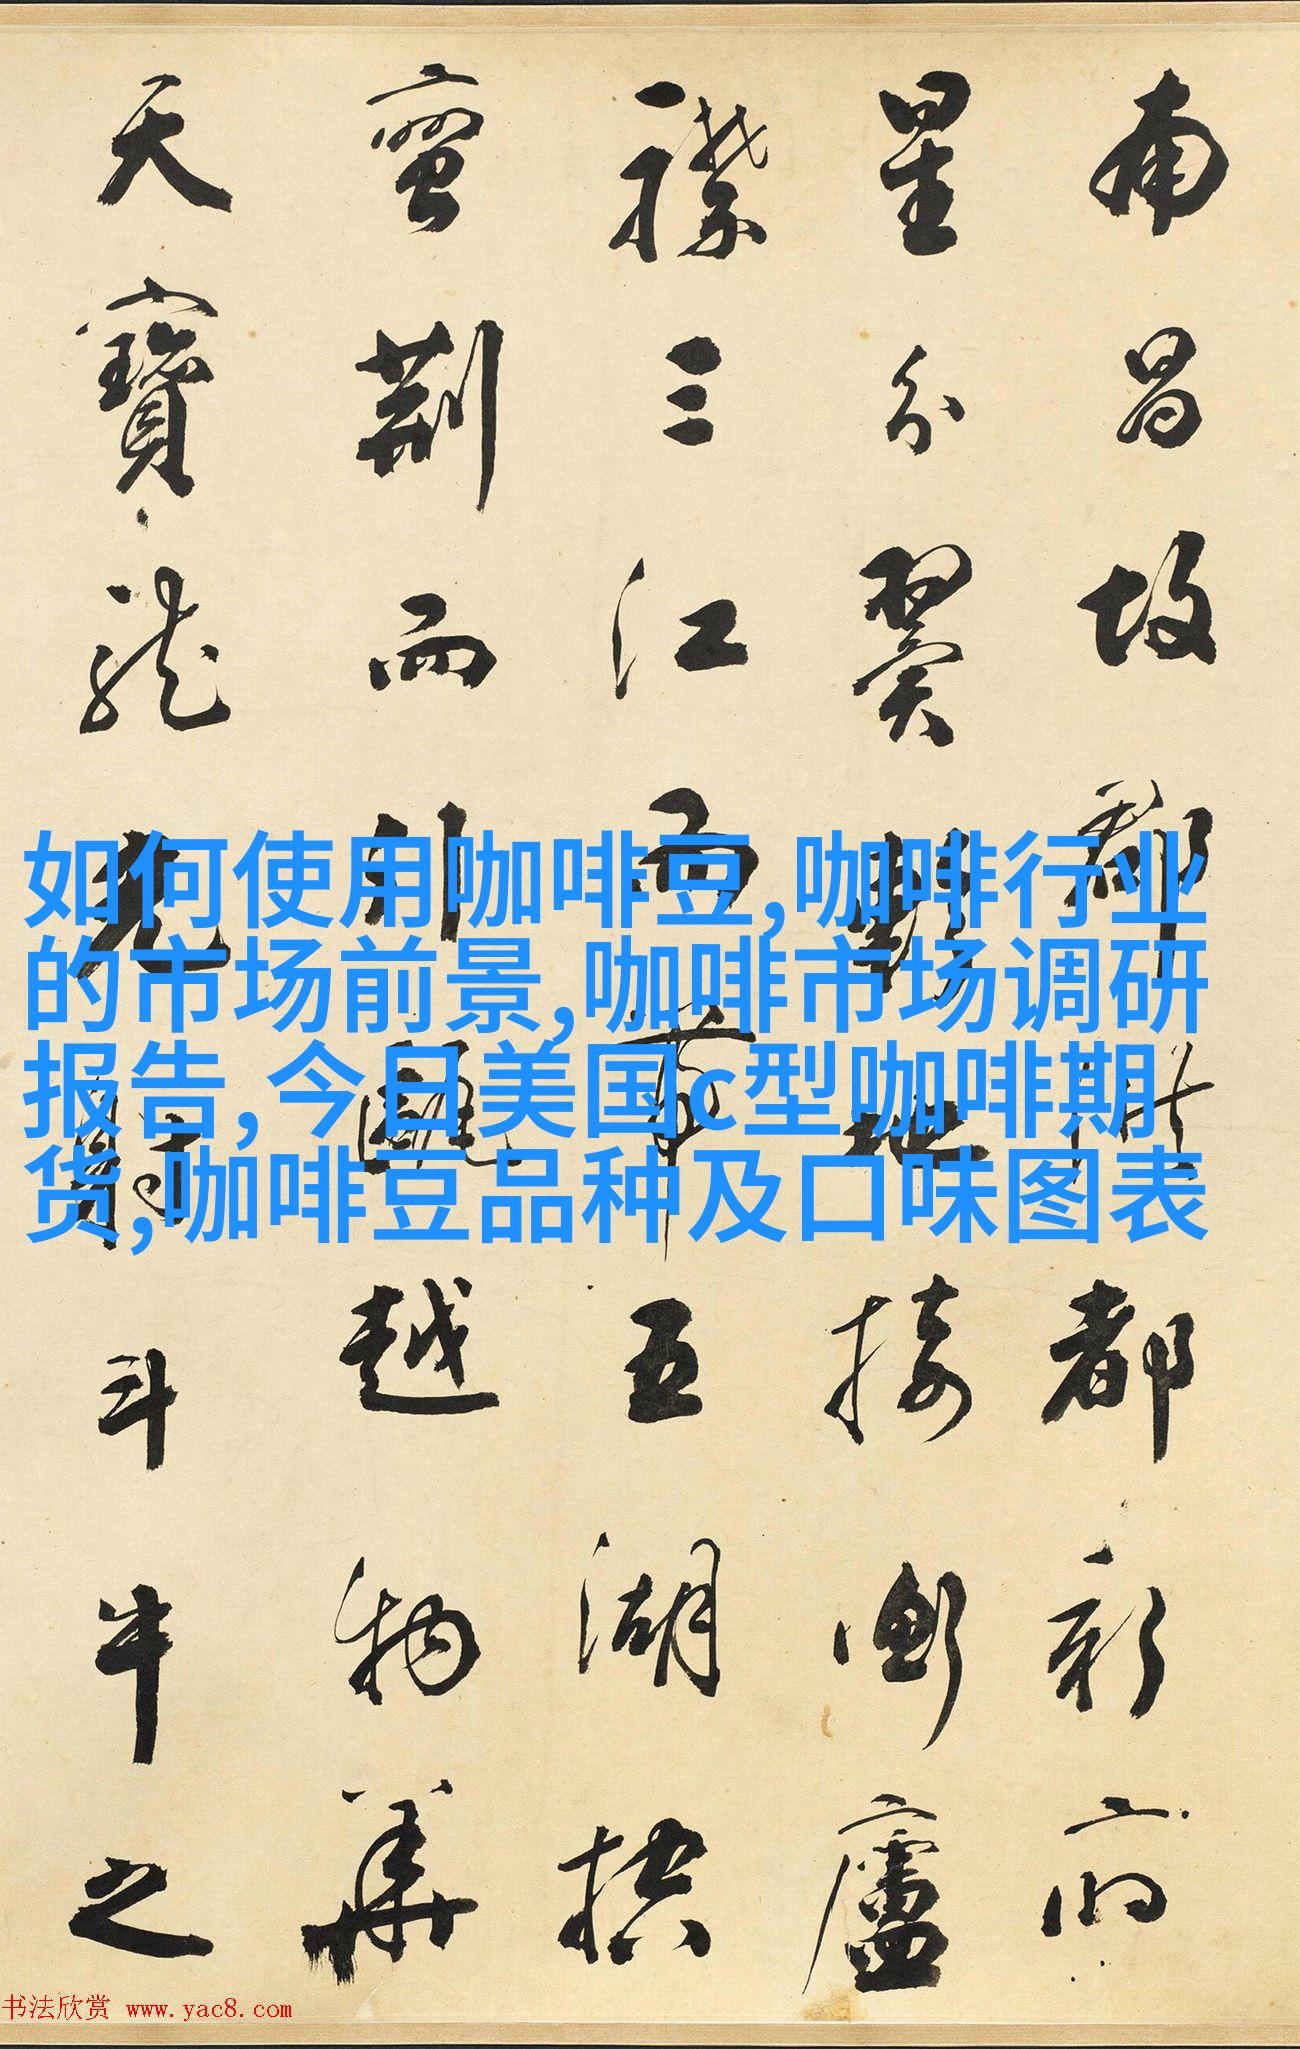 南昌故郡洪都新府
星分翼軫地接衡廬
襟三江而帶五湖控
蠻荊而引甌越物華
天寶龍光射斗牛之
如何使用咖啡豆,咖啡行业
的市场前景,咖啡市场调研
报告,今日美国c型咖啡期
货,咖啡豆品种及口味图表
书法欣赏 www.yac8.com